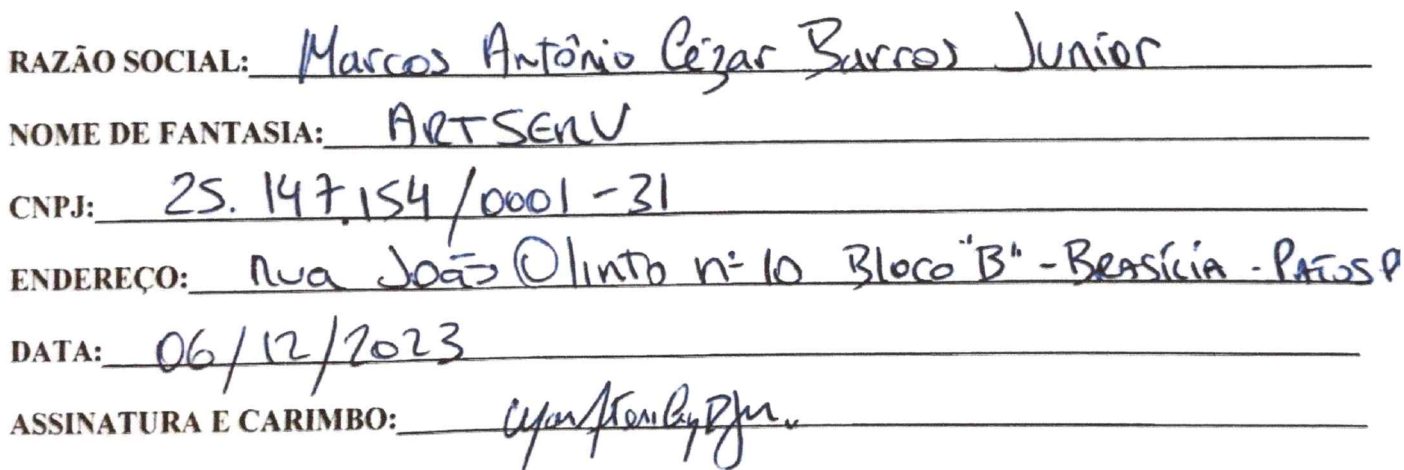 RAZÃO SOCIAL: Marcos Antônio Cézar Barros Junior
NOME DE FANTASIA: ARTSERV
CNPJ: 25.147.154/0001-31
ENDEREÇO: Rua João Olinto nº 10 Bloco "B" - BRASÍLIA - PATOS P
DATA: 06/12/2023
ASSINATURA E CARIMBO: